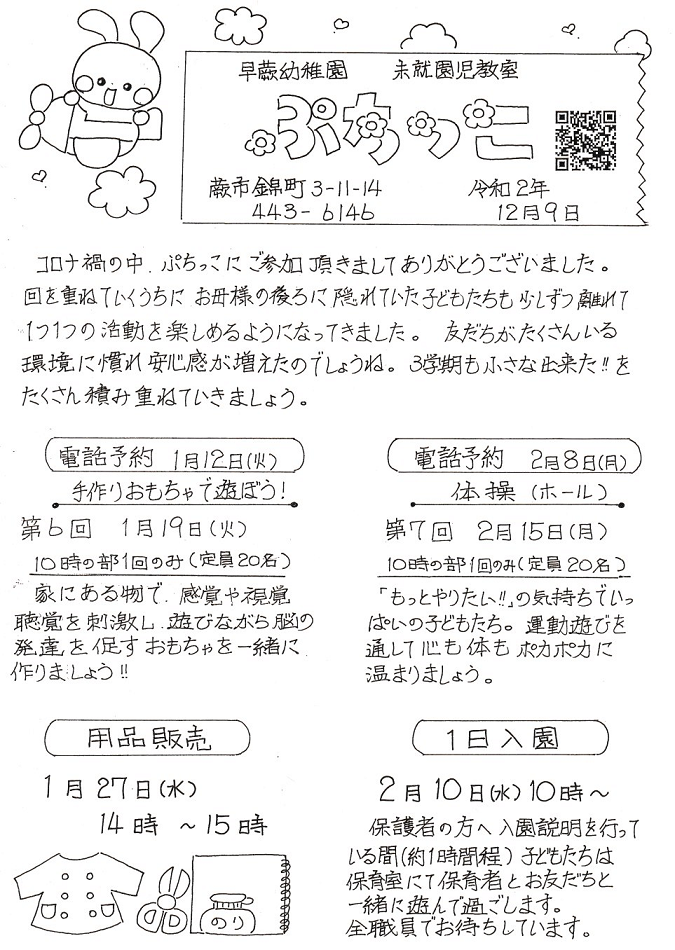 早蕨幼稚園 未就園児教室
ぷちっこ
蕨市錦町3-11-14
443-6146
令和2年
12月9日
コロナ禍の中、ぷちっこにご参加頂きましてありがとうございました。
回を重ねていくうちに お母様の後ろに隠れていた子どもたちも少しずつ離れて
1つ1つの活動を楽しめるようになってきました。 友だちがたくさんいる
環境に慣れ安心感が増えたのでしょうね。3学期も小さな出来た!!を
たくさん積み重ねていきましょう。
電話予約 1月12日(火)
手作りおもちゃで遊ぼう!
第6回 1月19日(火)
10時の部1回のみ(定員20名)
家にある物で、感覚や視覚
聴覚を刺激し、遊びながら脳の
発達を促すおもちゃを一緒に
作りましょう!!
電話予約 2月8日(月)
体操(ホール)
第7回 2月15日(月)
10時の部1回のみ(定員20名)
「もっとやりたい!!」の気持ちでいっ
ぱいの子どもたち。運動遊びを
通して心も体もポカポカに
温まりましょう。
用品販売
1月27日(水)
14時 ~15時
のり
1日入園
2月10日(水)10時~
保護者の方へ入園説明を行って
いる間(約1時間程)子どもたちは
保育室にて保育者とお友だちと
一緒に遊んで過ごします。
全職員でお待ちしています。